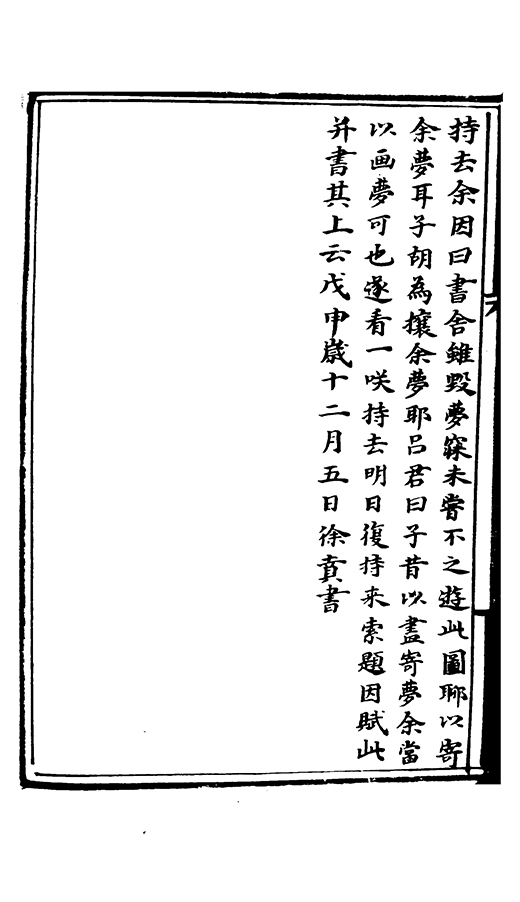 持去余因曰書舍雖毀夢寐未嘗不之遊此圖聊以寄
余夢耳子胡為攘余夢耶吕君曰子昔以畫寄夢余當
以画夢可也遂看一咲持去明日復持来索題因賦此
并書其上云戊申嵗十二月五日徐賁書